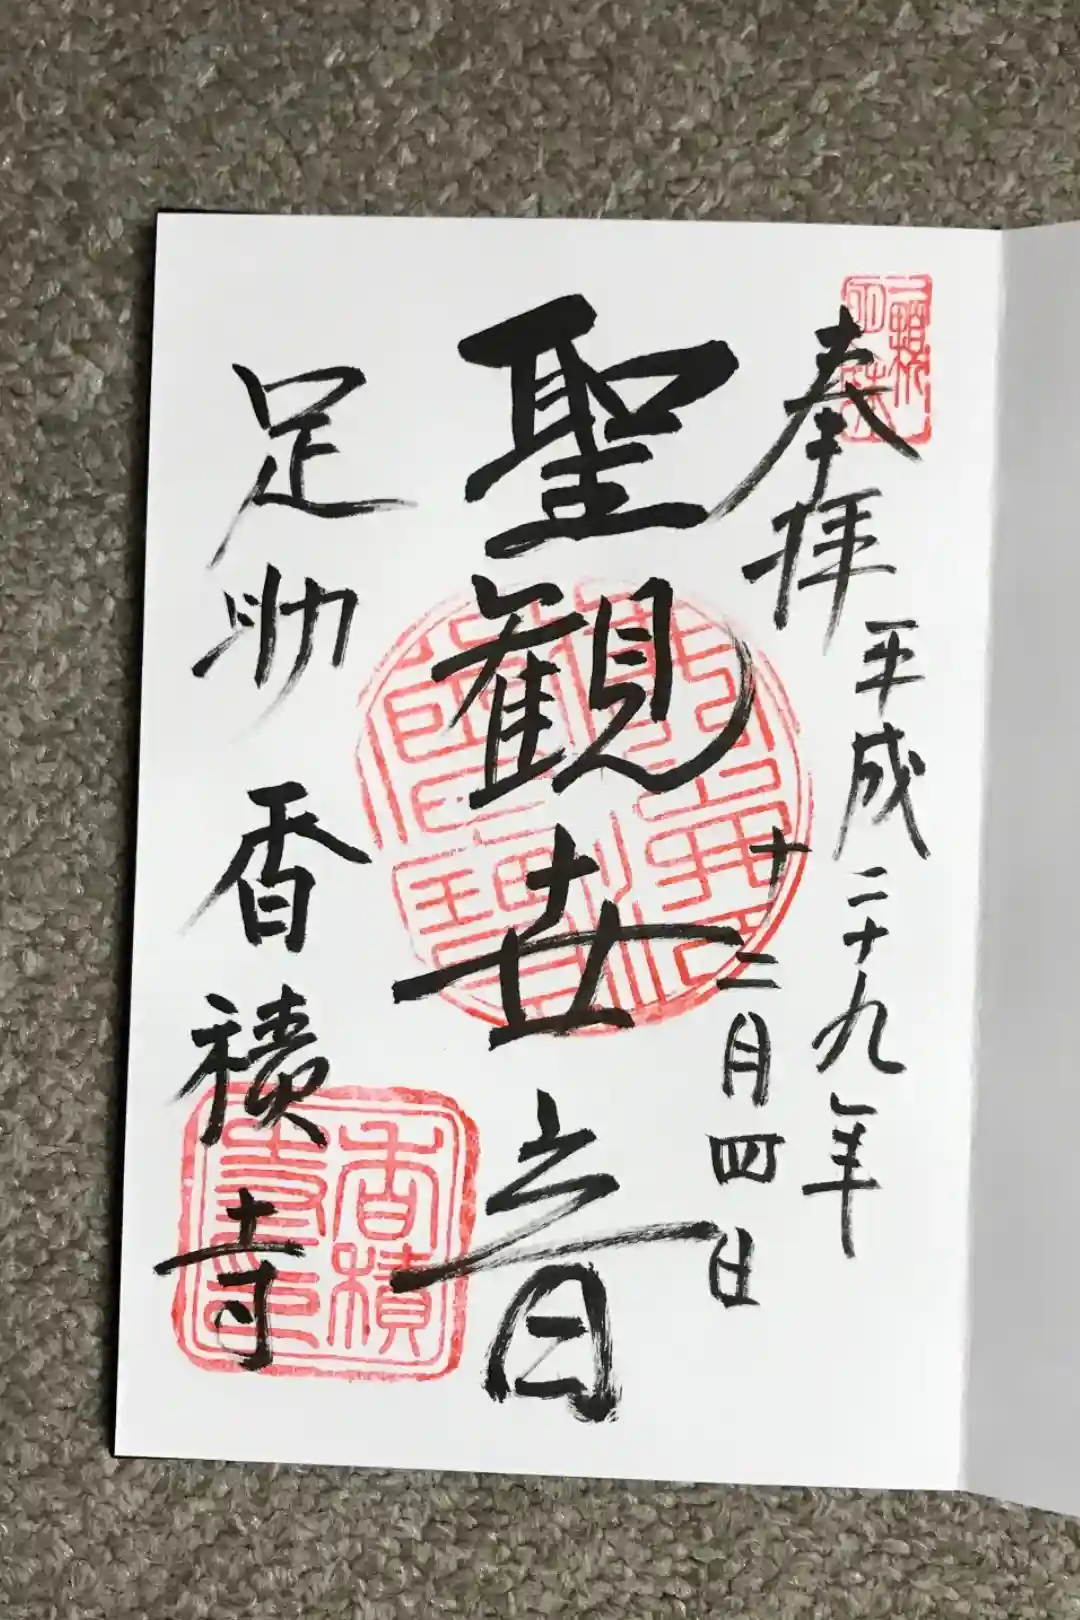 奉拝
平成二十九年
十二月四日
聖観世音
足助
香積寺
香積
寺印